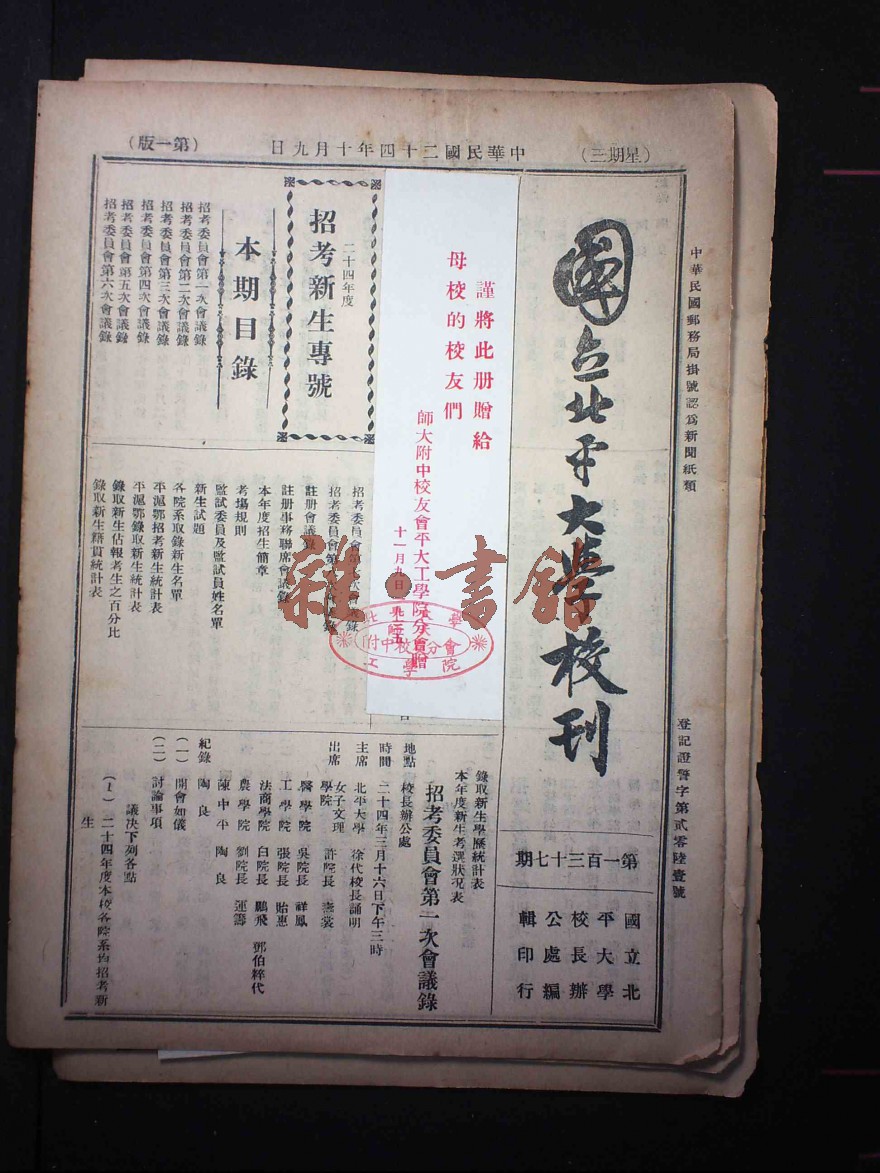 （星期三）
中華民國二十四年十月九日
（第一版）
中華民國郵務局掛號認為新聞紙類
登記證警字第貳零陸壹號
國立北平大學校刊
第一百三十七期
國立北
平大學
校長辦
公處編
輯印行
謹將此册贈給
母校的校友們
師大附中校友會平大工學院分會贈
十一月九日
雜·書館
二十四年度
招考新生專號
本期目錄
招考委員會第一次會議錄
招考委員會第二次會議錄
招考委員會第三次會議錄
招考委員會第四次會議錄
招考委員會第五次會議錄
招考委員會第六次會議錄
招考委員會第
招考委員會第
註册會議錄
註册事務聯席會議錄
本年度招生簡章
考場規則
監試委員及監試員姓名單
新生試題
各院系取錄新生名單
平滬鄂招考新生統計表
平滬鄂錄取新生統計表
錄取新生佔報考生之百分比
錄取新生籍貫統計表
錄取新生學歷統計表
本年度新生考選狀況表
招考委員會第一次會議錄
地點　校長辦公處
時間　二十四年三月十六日下午三時
主席　北平大學　徐代校長誦明
出席　女子文理
學院　許院長　壽裳
醫學院　吳院長　祥鳳
工學院　張院長　貽惠
法商學院　白院長　鵬飛　鄧伯粹代
農學院　劉院長　運籌
陳中平　陶良
紀錄　陶良
（一）　開會如儀
（二）　討論事項
議決下列各點
（1）　二十四年度本校各院系均招考新
生